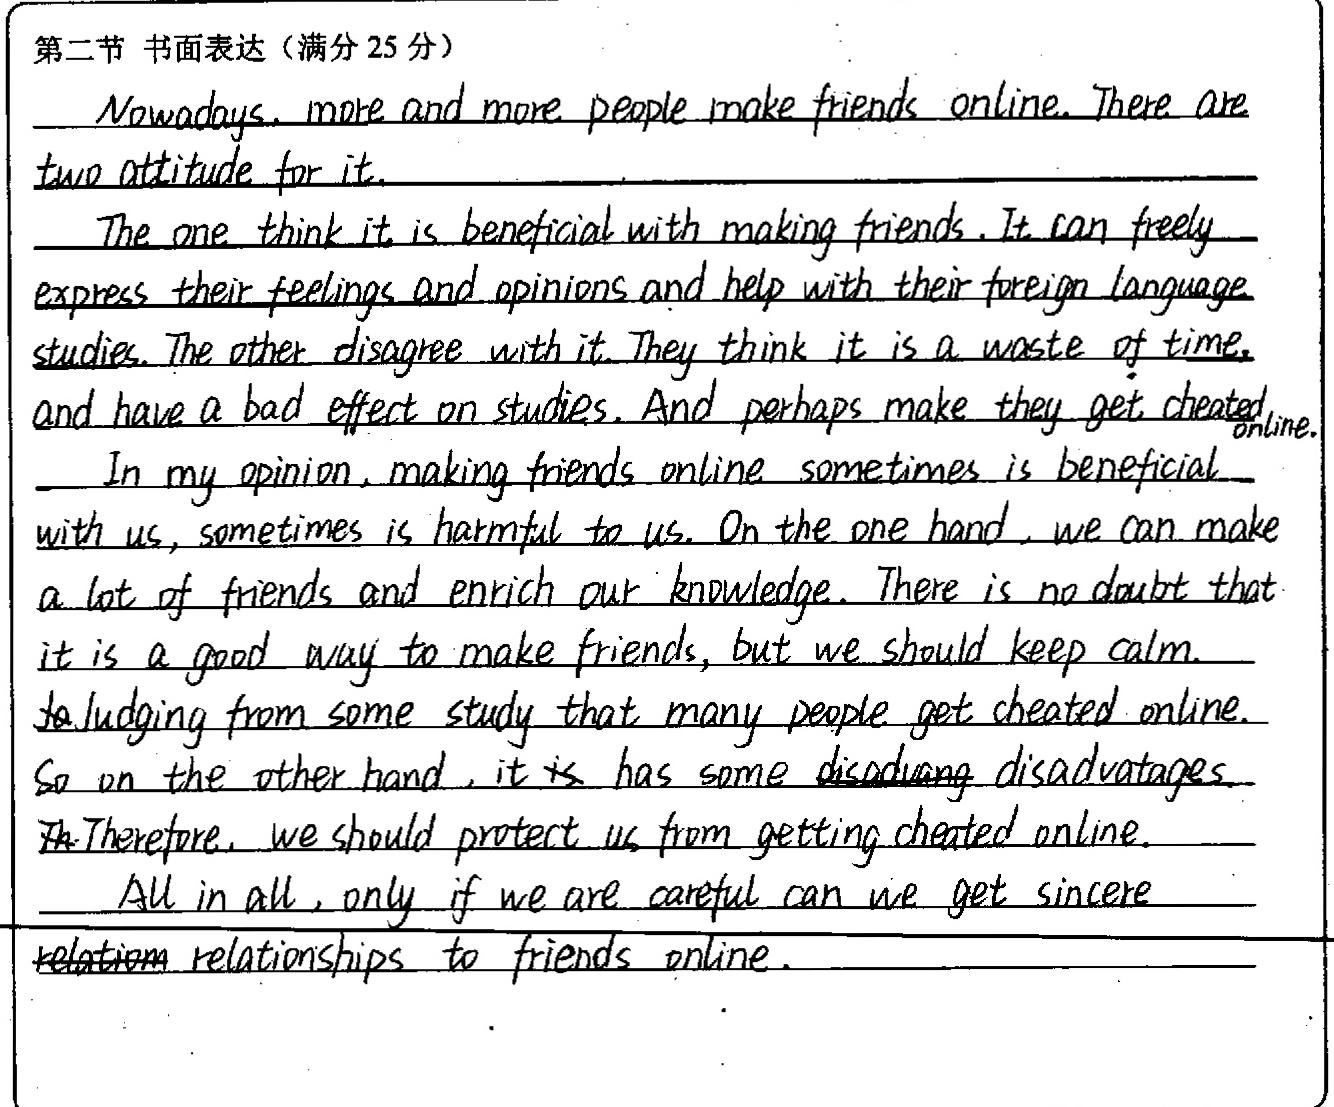 第二节 书面表达（满分 25 分）
Nowadays, more and more people make friends online. There are
two attitude for it.
The one think it is beneficial with making friends. It can freely
express their feelings and opinions and help with their foreign language
studies. The other disagree with it. They think it is a waste of time,
and have a bad effect on studies. And perhaps make they get cheated
online.
In my opinion, making friends online sometimes is beneficial
with us, sometimes is harmful to us. On the one hand, we can make
a lot of friends and enrich our knowledge. There is no doubt that
it is a good way to make friends, but we should keep calm.
to Judging from some study that many people get cheated online.
So on the other hand, it is has some disadvang disadvatages.
Th Therefore, we should protect us from getting cheated online.
All in all, only if we are careful can we get sincere
relatiom relationships to friends online.